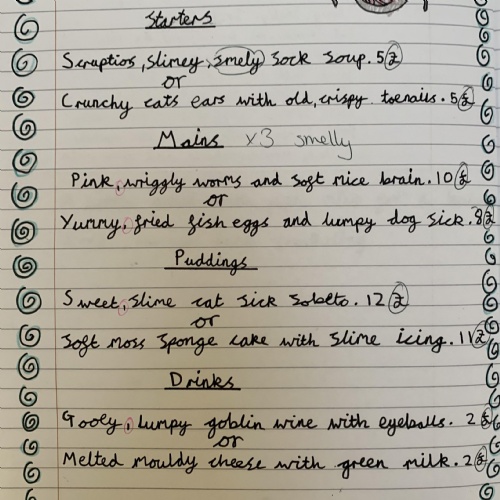 Starters
Scruptios, slimey, smely sock soup. 5£
or
Crunchy cats ears with old, crispy toenails. 5£
Mains x3 smelly
Pink, wriggly worms and soft mice brain. 10£
or
Yummy, fried fish eggs and lumpy dog sick. 8£
Puddings
Sweet, slime cat sick sobeto. 12£
or
Soft moss sponge cake with slime icing. 11£
Drinks
Gooey, lumpy goblin wine with eyeballs. 2£
or
Melted mouldy cheese with green milk. 2£